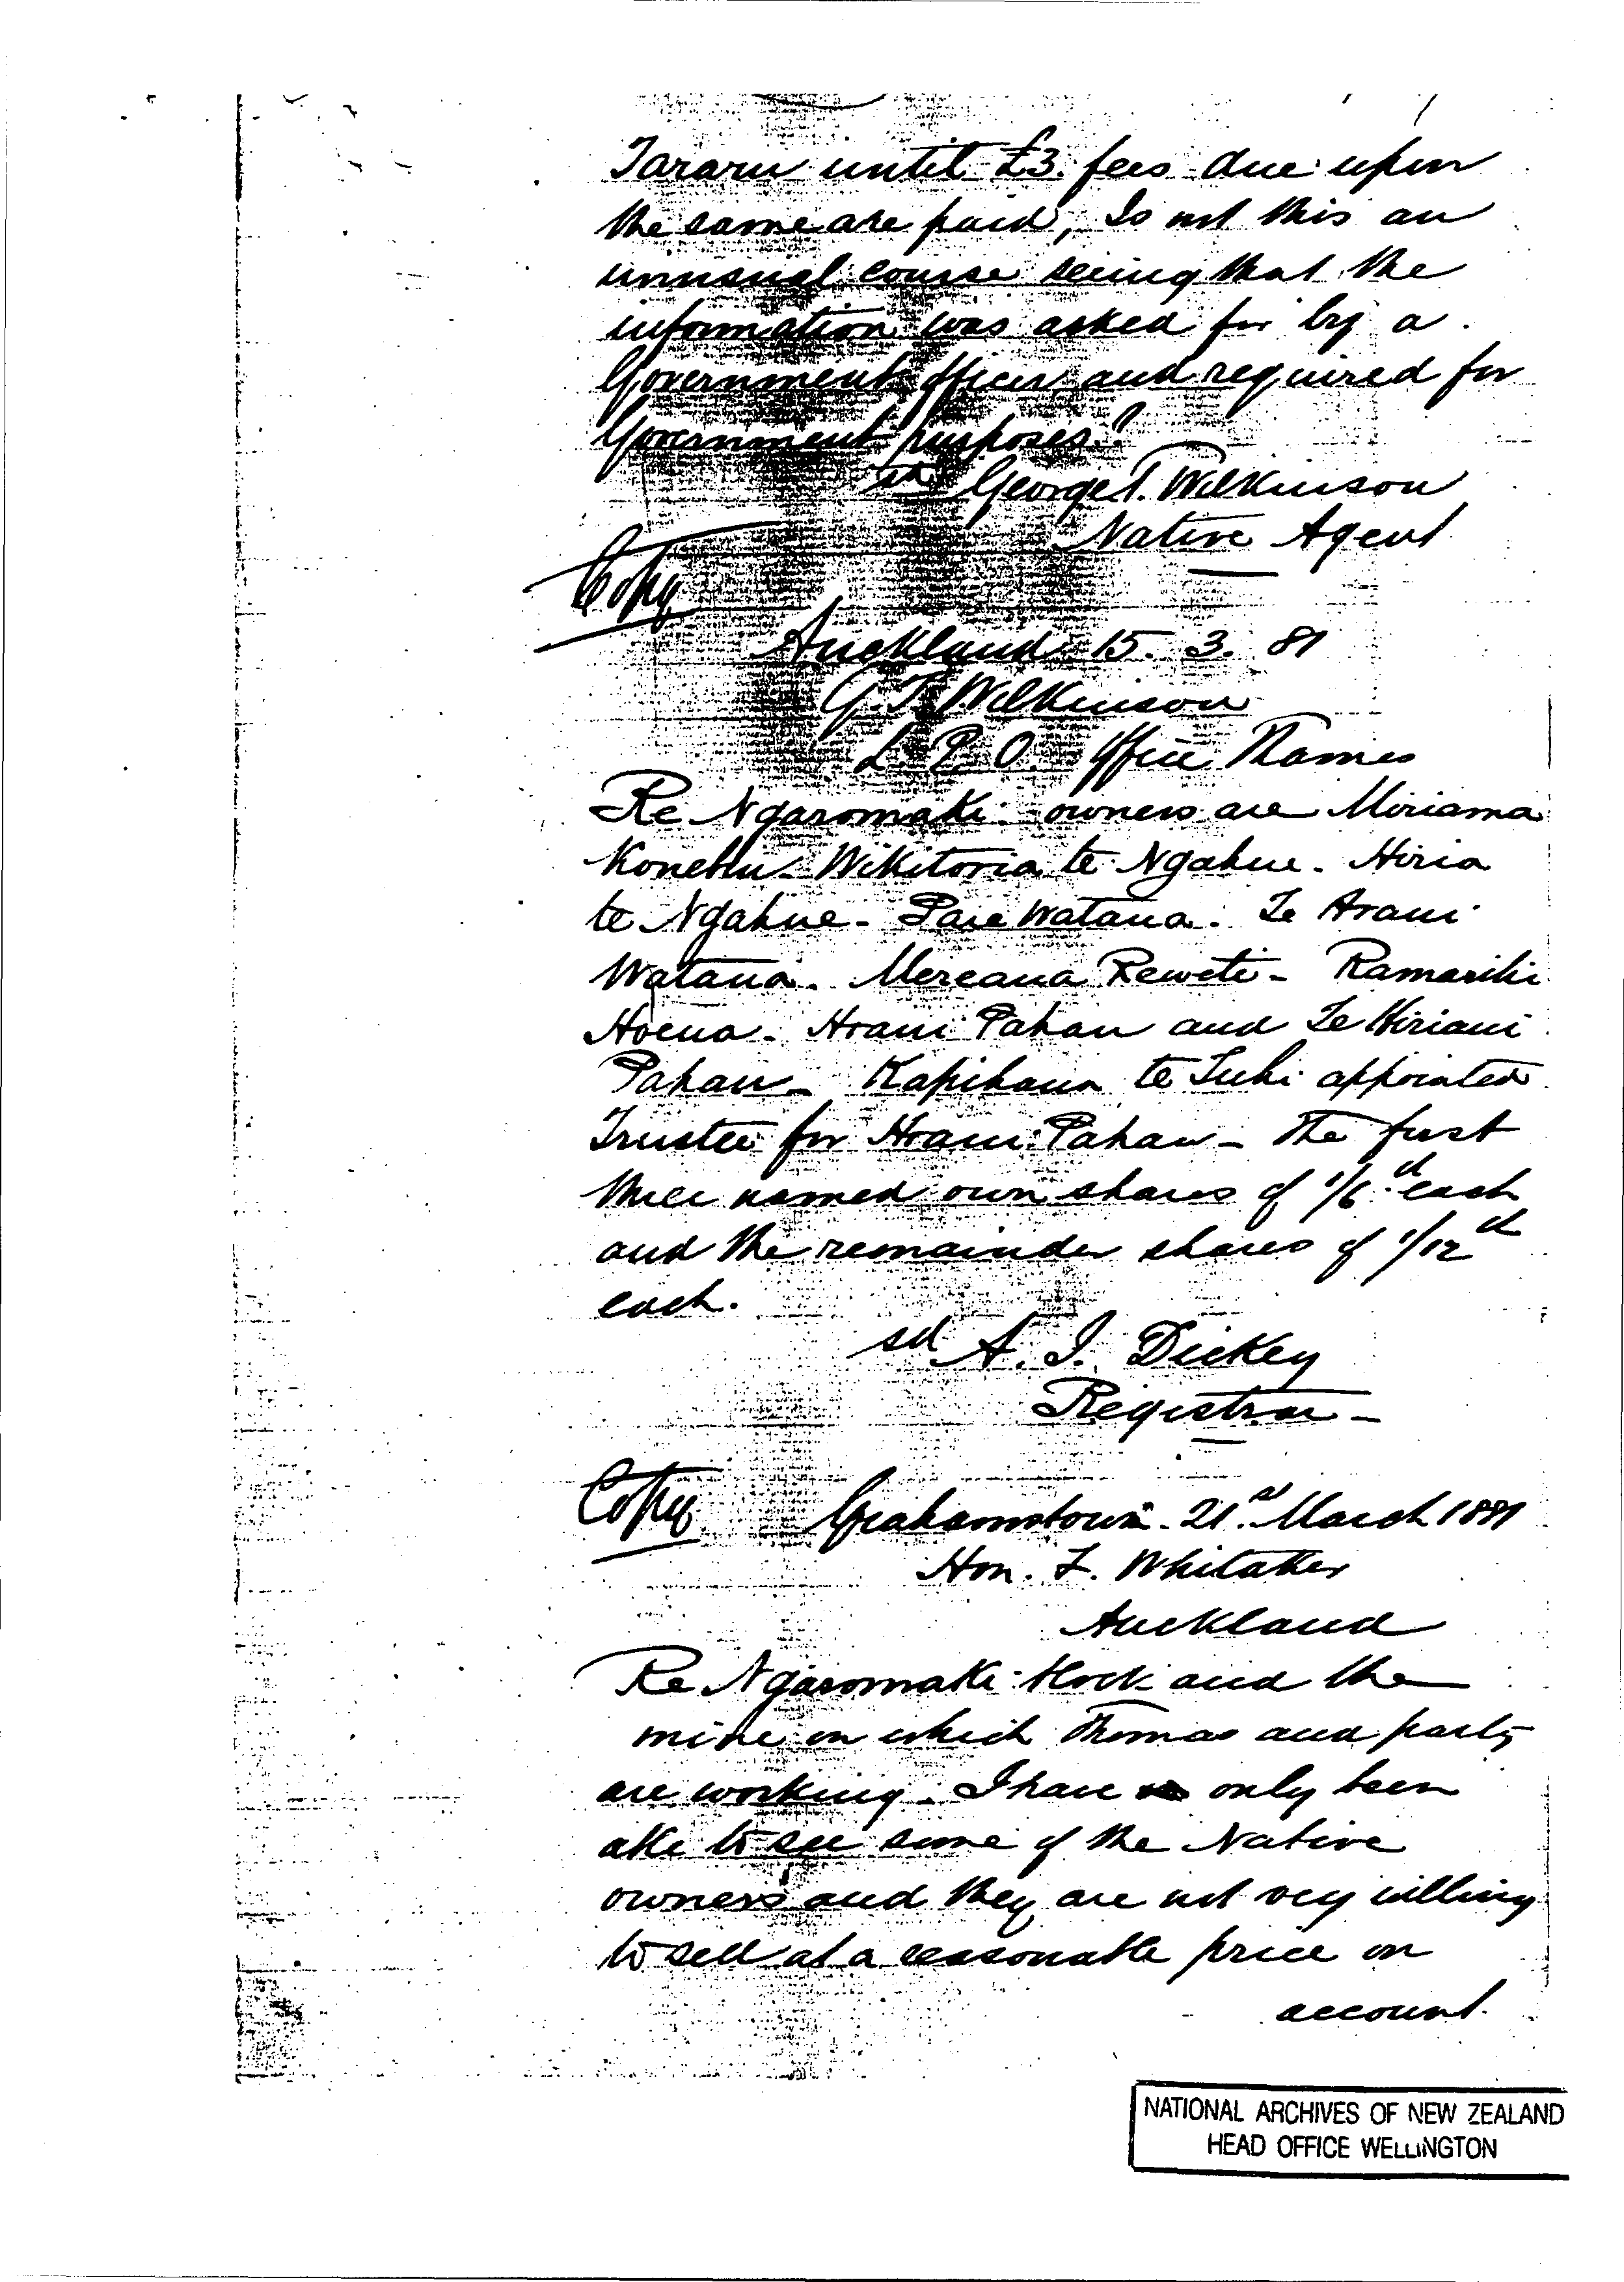 Tararu until £3. fees due upon
the same are paid, Is not this an
unusual course seeing that the
information was asked for by a
Government officer and required for
Government purposes?
sd George T. Wilkinson
Native Agent
Copy
Auckland 15. 3. 81
G. T. Wilkinson
L. P. O. Office Thames
Re Ngaromaki owners are Miriama
Konehu - Wikitoria te Ngahue - Hiria
te Ngahue - Pare Watana. Te Arani
Watana. Mereana Reweti - Ramariki
Hoena. Hrani Pahau and Te Hiriani
Pahau - Kapihana te Tuhi appointed
Trustee for Hrani Pahau - The first
three named own shares of 1/6th each
and the remainder shares of 1/12th
each.
sd A. J. Dickey
Registrar -
Copy
Grahamstown. 21st March 1881
Hon. F. Whitaker
Auckland
Re Ngaromaki block and the
mine on which Thomas and party
are working. I have only been
able to see some of the Native
owners and they are not very willing
to sell at a reasonable price on
account.
NATIONAL ARCHIVES OF NEW ZEALAND
HEAD OFFICE WELLINGTON